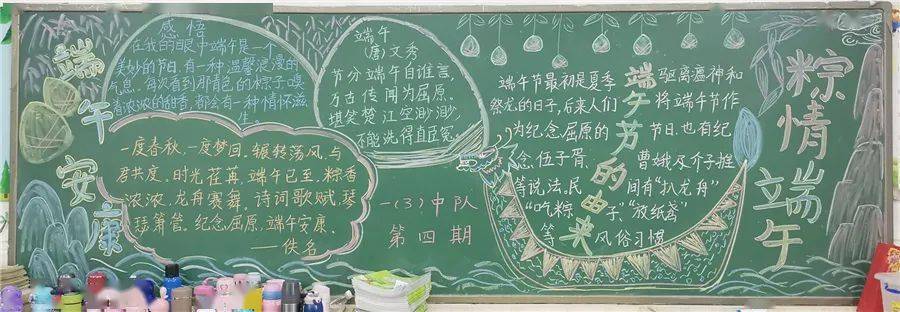 端午安康
感悟
在我的眼中端午是一个
美妙的节日,有一种温馨浪漫的
气息。每次看到那青色的粽子嗅
着浓浓的甜香,都会有一种情怀滋
生。
一度春秋,一度梦回。辗转荡风,与
君共度。时光荏苒,端午已至,粽香
浓浓,龙舟赛舞。诗词歌赋,琴
瑟箫管。纪念屈原,端午安康。
——佚名
端午
(唐)文秀
节分端午自谁言,
万古传闻为屈原。
堪笑楚江空渺渺,
不能洗得直臣冤。
一(3)中队
第四期
端午节的由来
端午节最初是夏季
驱离瘟神和
祭龙的日子,后来人们
将端午节作
为纪念屈原的
节日。也有纪
念伍子胥、
曹娥及介子推
等说法。民
间有“扒龙舟”
“吃粽子”、“放纸鸢”
等
风俗习惯
粽情端午